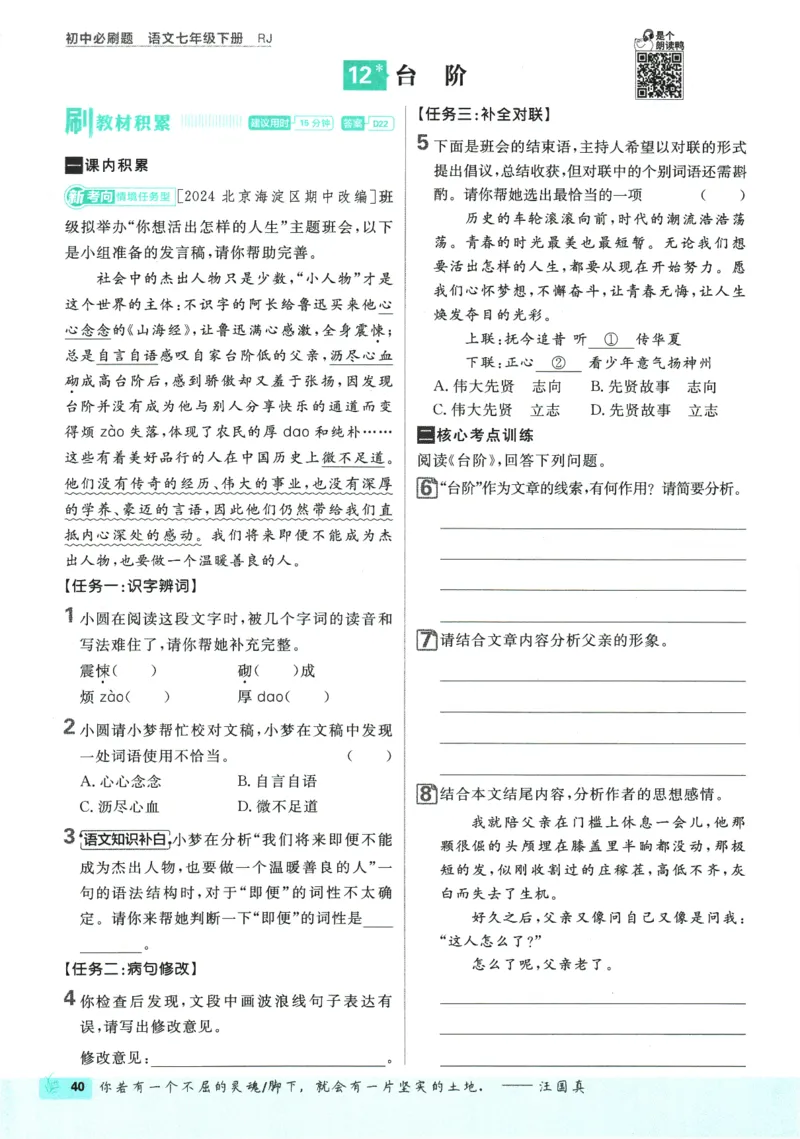 初中必刷题 语文七年级下册 RJ
是个
朗读鸭
12* 台 阶
刷教材积累 建议用时 15分钟 答案 D22
一 课内积累
新考向 情境任务型 [2024 北京海淀区期中改编]班
级拟举办“你想活出怎样的人生”主题班会,以下
是小组准备的发言稿,请你帮助完善。
社会中的杰出人物只是少数,“小人物”才是
这个世界的主体:不识字的阿长给鲁迅买来他心
心念念的《山海经》,让鲁迅满心感激,全身震悚;
总是自言自语感叹自家台阶低的父亲,沥尽心血
砌成高台阶后,感到骄傲却又羞于张扬,因发现
台阶并没有成为他与别人分享快乐的通道而变
得烦 zào 失落,体现了农民的厚 dao 和纯朴……
这些有着美好品行的人在中国历史上微不足道。
他们没有传奇的经历、伟大的事业,也没有深厚
的学养、豪迈的言语,因此他们仍然带给我们直
抵内心深处的感动。我们将来即便不能成为杰
出人物,也要做一个温暖善良的人。
【任务一:识字辨词】
1 小圆在阅读这段文字时,被几个字词的读音和
写法难住了,请你帮她补充完整。
震悚( ) 砌( )成
烦 zào( ) 厚 dao( )
2 小圆请小梦帮忙校对文稿,小梦在文稿中发现
一处词语使用不恰当。 ( )
A. 心心念念 B. 自言自语
C. 沥尽心血 D. 微不足道
3 语文知识补白 小梦在分析“我们将来即便不能
成为杰出人物,也要做一个温暖善良的人”一
句的语法结构时,对于“即便”的词性不太确
定。请你来帮她判断一下“即便”的词性是____
________。
【任务二:病句修改】
4 你检查后发现,文段中画波浪线句子表达有
误,请写出修改意见。
修改意见:________________________。
【任务三:补全对联】
5 下面是班会的结束语,主持人希望以对联的形式
提出倡议,总结收获,但对联中的个别词语还需斟
酌。请你帮她选出最恰当的一项 ( )
历史的车轮滚滚向前,时代的潮流浩浩荡
荡。青春的时光最美也最短暂。无论我们想
要活出怎样的人生,都要从现在开始努力。愿
我们心怀梦想,不懈奋斗,让青春无悔,让人生
焕发夺目的光彩。
上联:抚今追昔 听 ① 传华夏
下联:正心 ② 看少年意气扬神州
A. 伟大先贤 志向 B. 先贤故事 志向
C. 伟大先贤 立志 D. 先贤故事 立志
二 核心考点训练
阅读《台阶》,回答下列问题。
6 “台阶”作为文章的线索,有何作用? 请简要分析。
7 请结合文章内容分析父亲的形象。
8 结合本文结尾内容,分析作者的思想感情。
我就陪父亲在门槛上休息一会儿,他那
颗很倔的头颅埋在膝盖里半晌都没动,那极
短的发,似刚收割过的庄稼茬,高低不齐,灰
白而失去了生机。
好久之后,父亲又像问自己又像是问我:
“这人怎么了?”
怎么了呢,父亲老了。
40 你若有一个不屈的灵魂/脚下，就会有一片坚实的土地. —— 汪国真